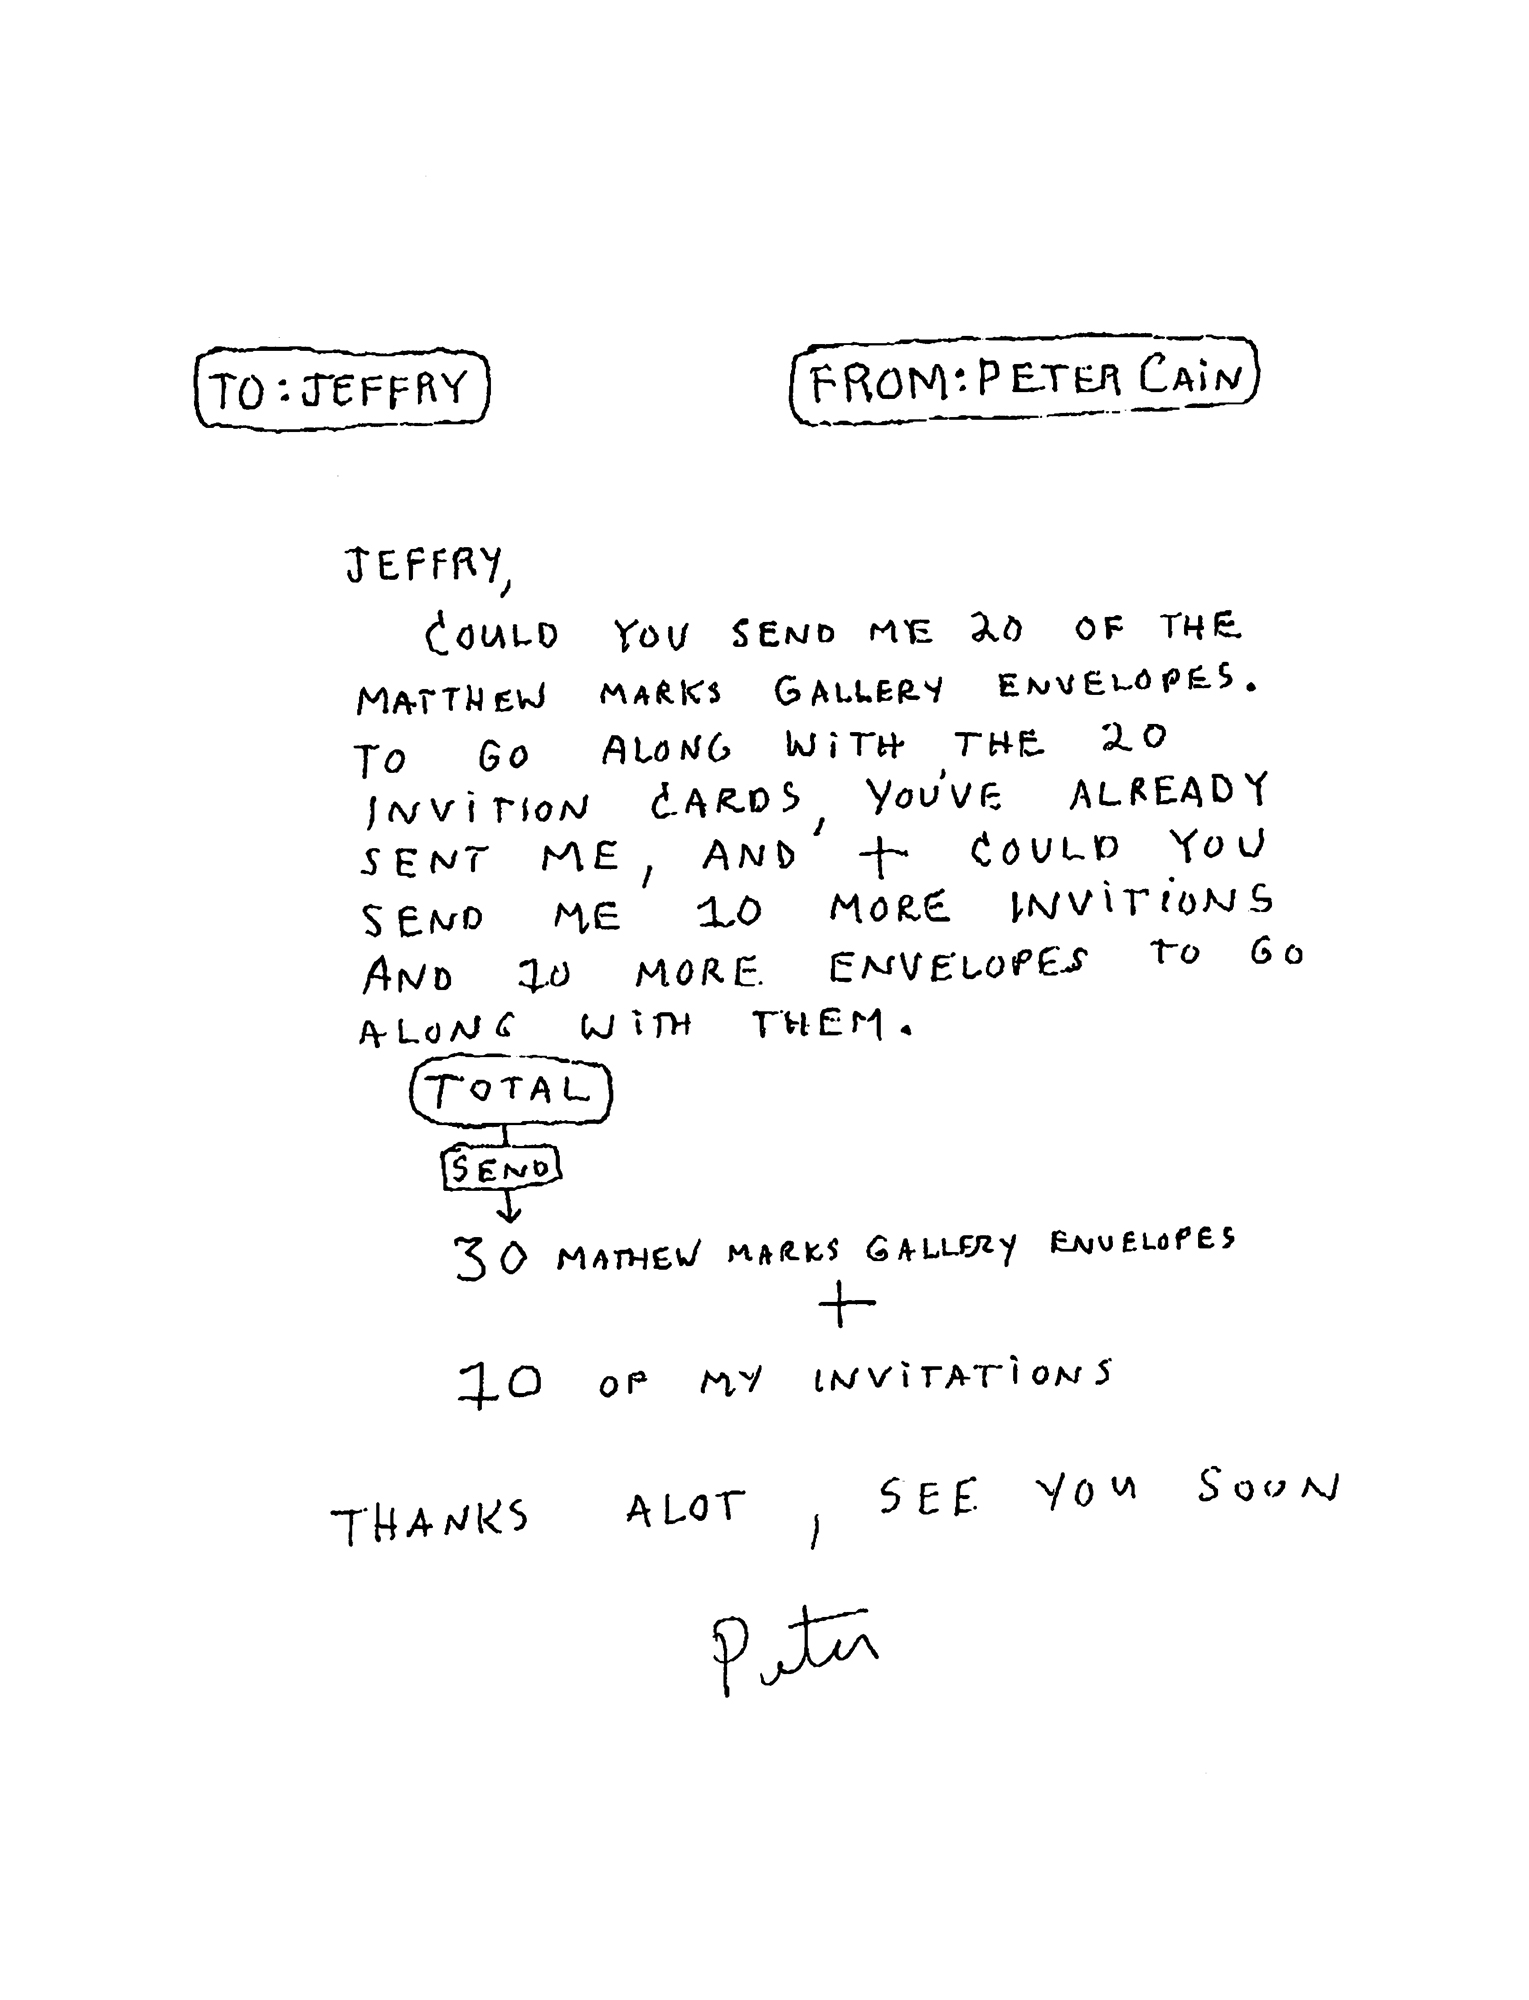 TO: JEFFRY
FROM: PETER CAIN
JEFFRY,
COULD YOU SEND ME 20 OF THE
MATTHEW MARKS GALLERY ENVELOPES.
TO GO ALONG WITH THE 20
INVITION CARDS, YOU'VE ALREADY
SENT ME, AND + COULD YOU
SEND ME 10 MORE INVITIONS
AND 10 MORE ENVELOPES TO GO
ALONG WITH THEM.
TOTAL
SEND
30 MATHEW MARKS GALLERY ENVELOPES
+
10 OF MY INVITATIONS
THANKS ALOT, SEE YOU SOON
Peter